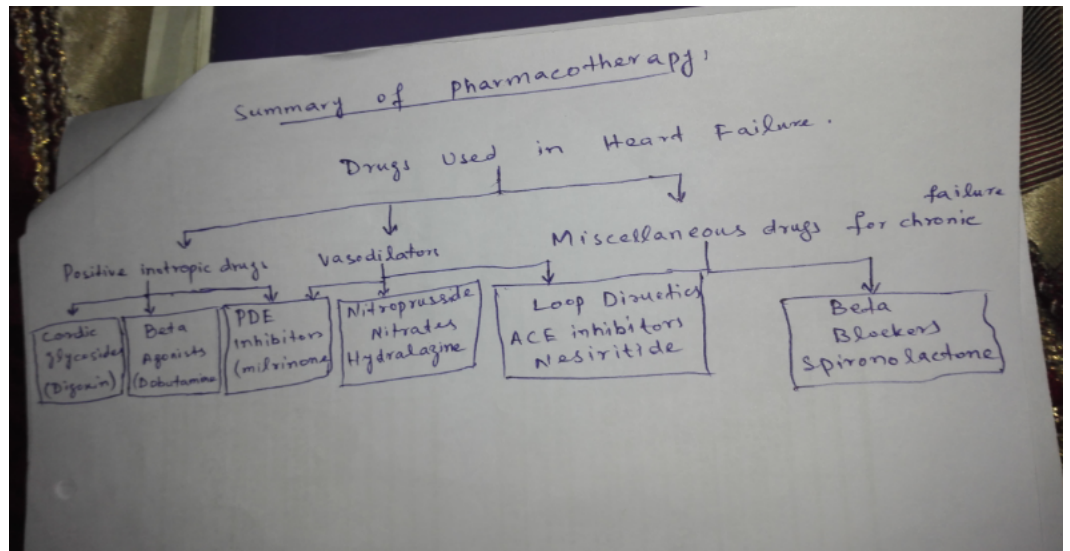 Summary of Pharmacotherapy,
Drugs Used in Heart Failure.
failure
Positive inotropic drugs
Vasodilators
Miscellaneous drugs for chronic
Cardic
glycosides
(Digoxin)
Beta
Agonists
(Dobutamine
PDE
inhibitors
(milrinone)
Nitroprusside
Nitrates
Hydralazine
Loop Diruetics
ACE inhibitors
Nesiritide
Beta
Blockers
Spironolactone